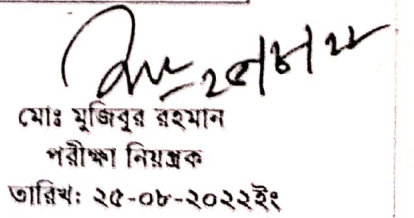 ২৫/৮/২২
মোঃ মুজিবুর রহমান
পরীক্ষা নিয়ন্ত্রক
তারিখ: ২৫-০৮-২০২২ইং